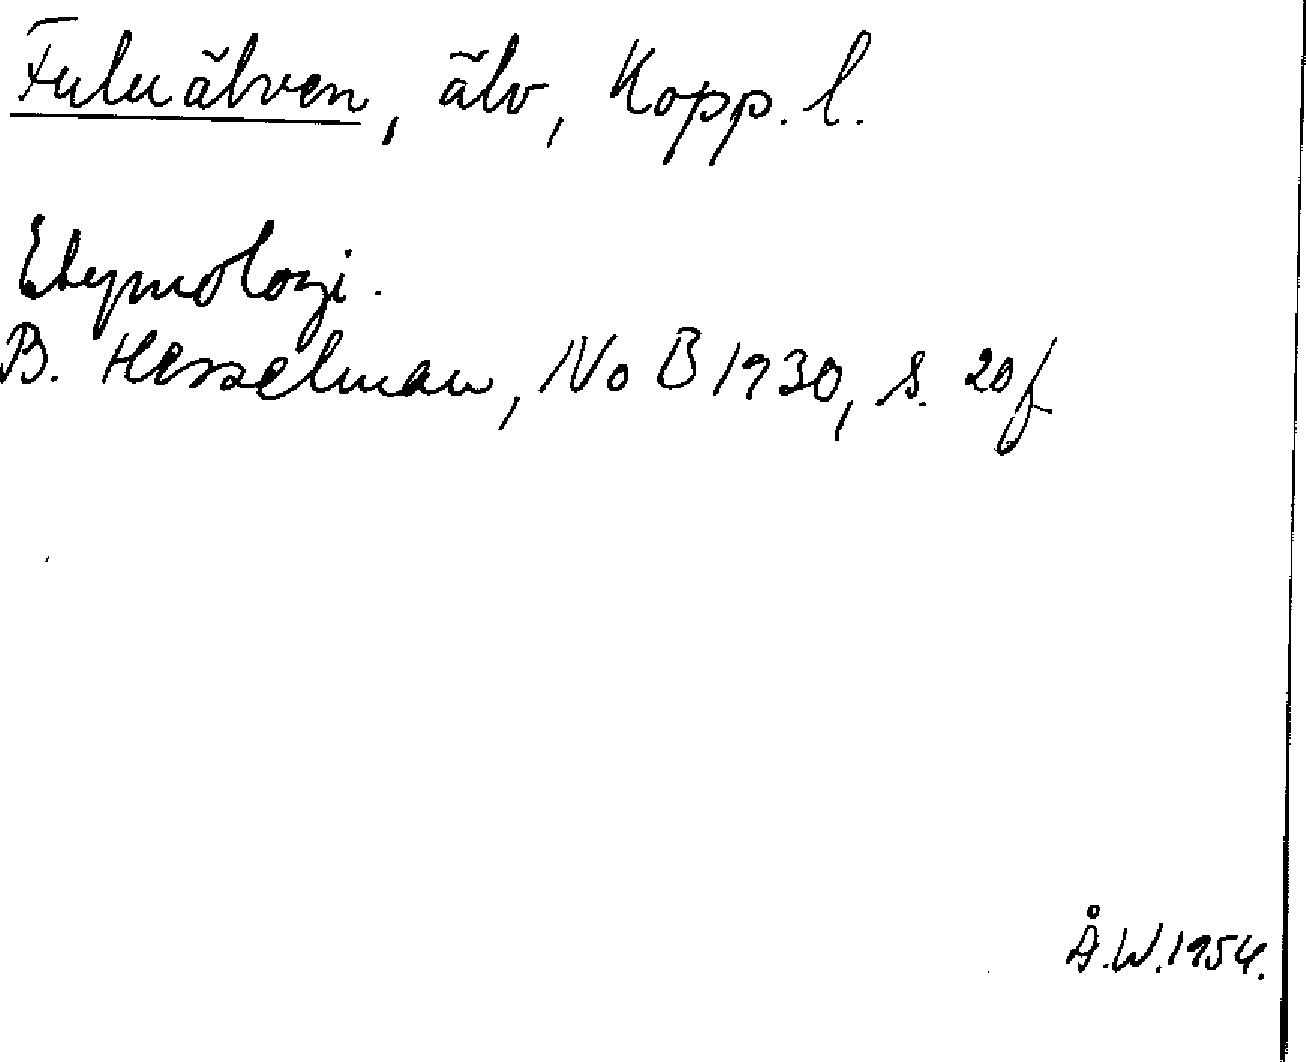 Fuluälven, älv, Kopp. l.
Etymologi.
B. Hesselman, NoB 1930, s. 20f
Å.W. 1954.